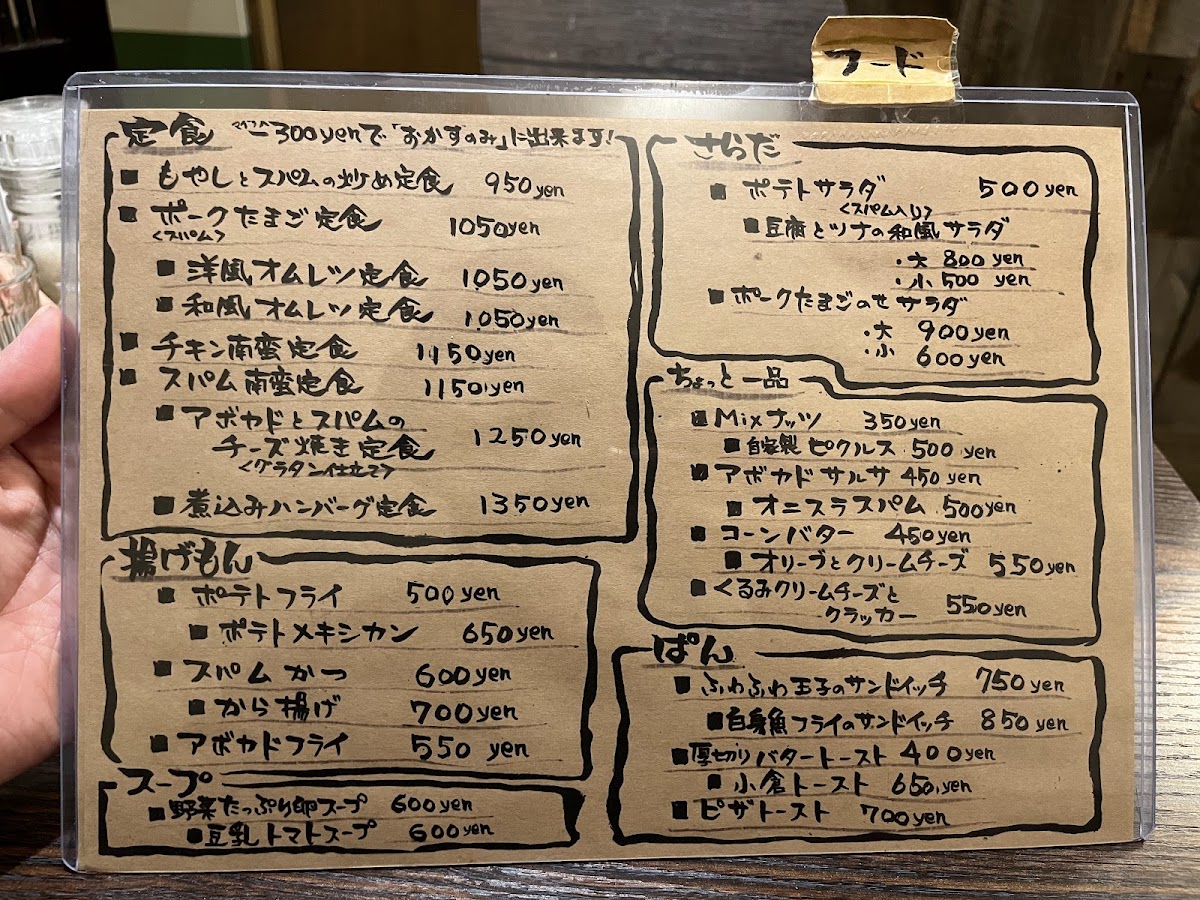 フード
定食 マイナス ー300yenで「おかずのみ」に出来ます!
■ もやしとスパムの炒め定食 950yen
■ ポークたまご定食 1050yen
<スパム>
■ 洋風オムレツ定食 1050yen
■ 和風オムレツ定食 1050yen
■ チキン南蛮定食 1150yen
■ スパム南蛮定食 1150yen
■ アボカドとスパムの
チーズ焼き定食 1250yen
<グラタン仕立て>
■ 煮込みハンバーグ定食 1350yen
揚げもん
■ ポテトフライ 500yen
■ ポテトメキシカン 650yen
■ スパムかつ 600yen
■ から揚げ 700yen
■ アボカドフライ 550yen
スープ
■ 野菜たっぷり卵スープ 600yen
■ 豆乳トマトスープ 600yen
さらだ
■ ポテトサラダ 500yen
<スパム入り>
■ 豆腐とツナの和風サラダ
・大 800yen
・小 500yen
■ ポークたまごのせサラダ
・大 900yen
・小 600yen
ちょっと一品
■ Mixナッツ 350yen
■ 自家製ピクルス 500yen
■ アボカドサルサ 450yen
■ オニスラスパム 500yen
■ コーンバター 450yen
■ オリーブとクリームチーズ 550yen
■ くるみクリームチーズと
クラッカー 550yen
ぱん
■ ふわふわ玉子のサンドイッチ 750yen
■ 白身魚フライのサンドイッチ 850yen
■ 厚切りバタートースト 400yen
■ 小倉トースト 650yen
■ ピザトースト 700yen